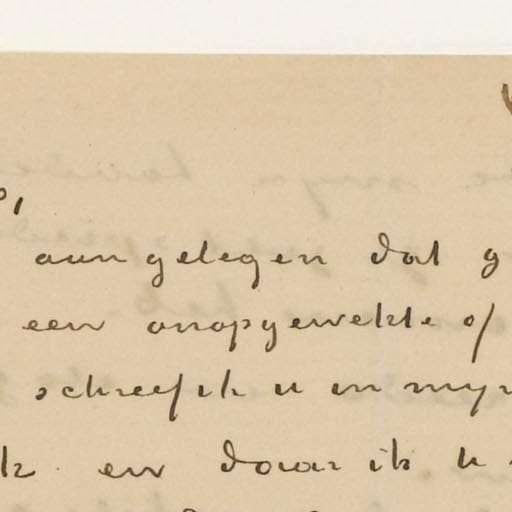 aangelegen dat g
een onopgewekte of
schreef ik u in myn
k en daar ik u